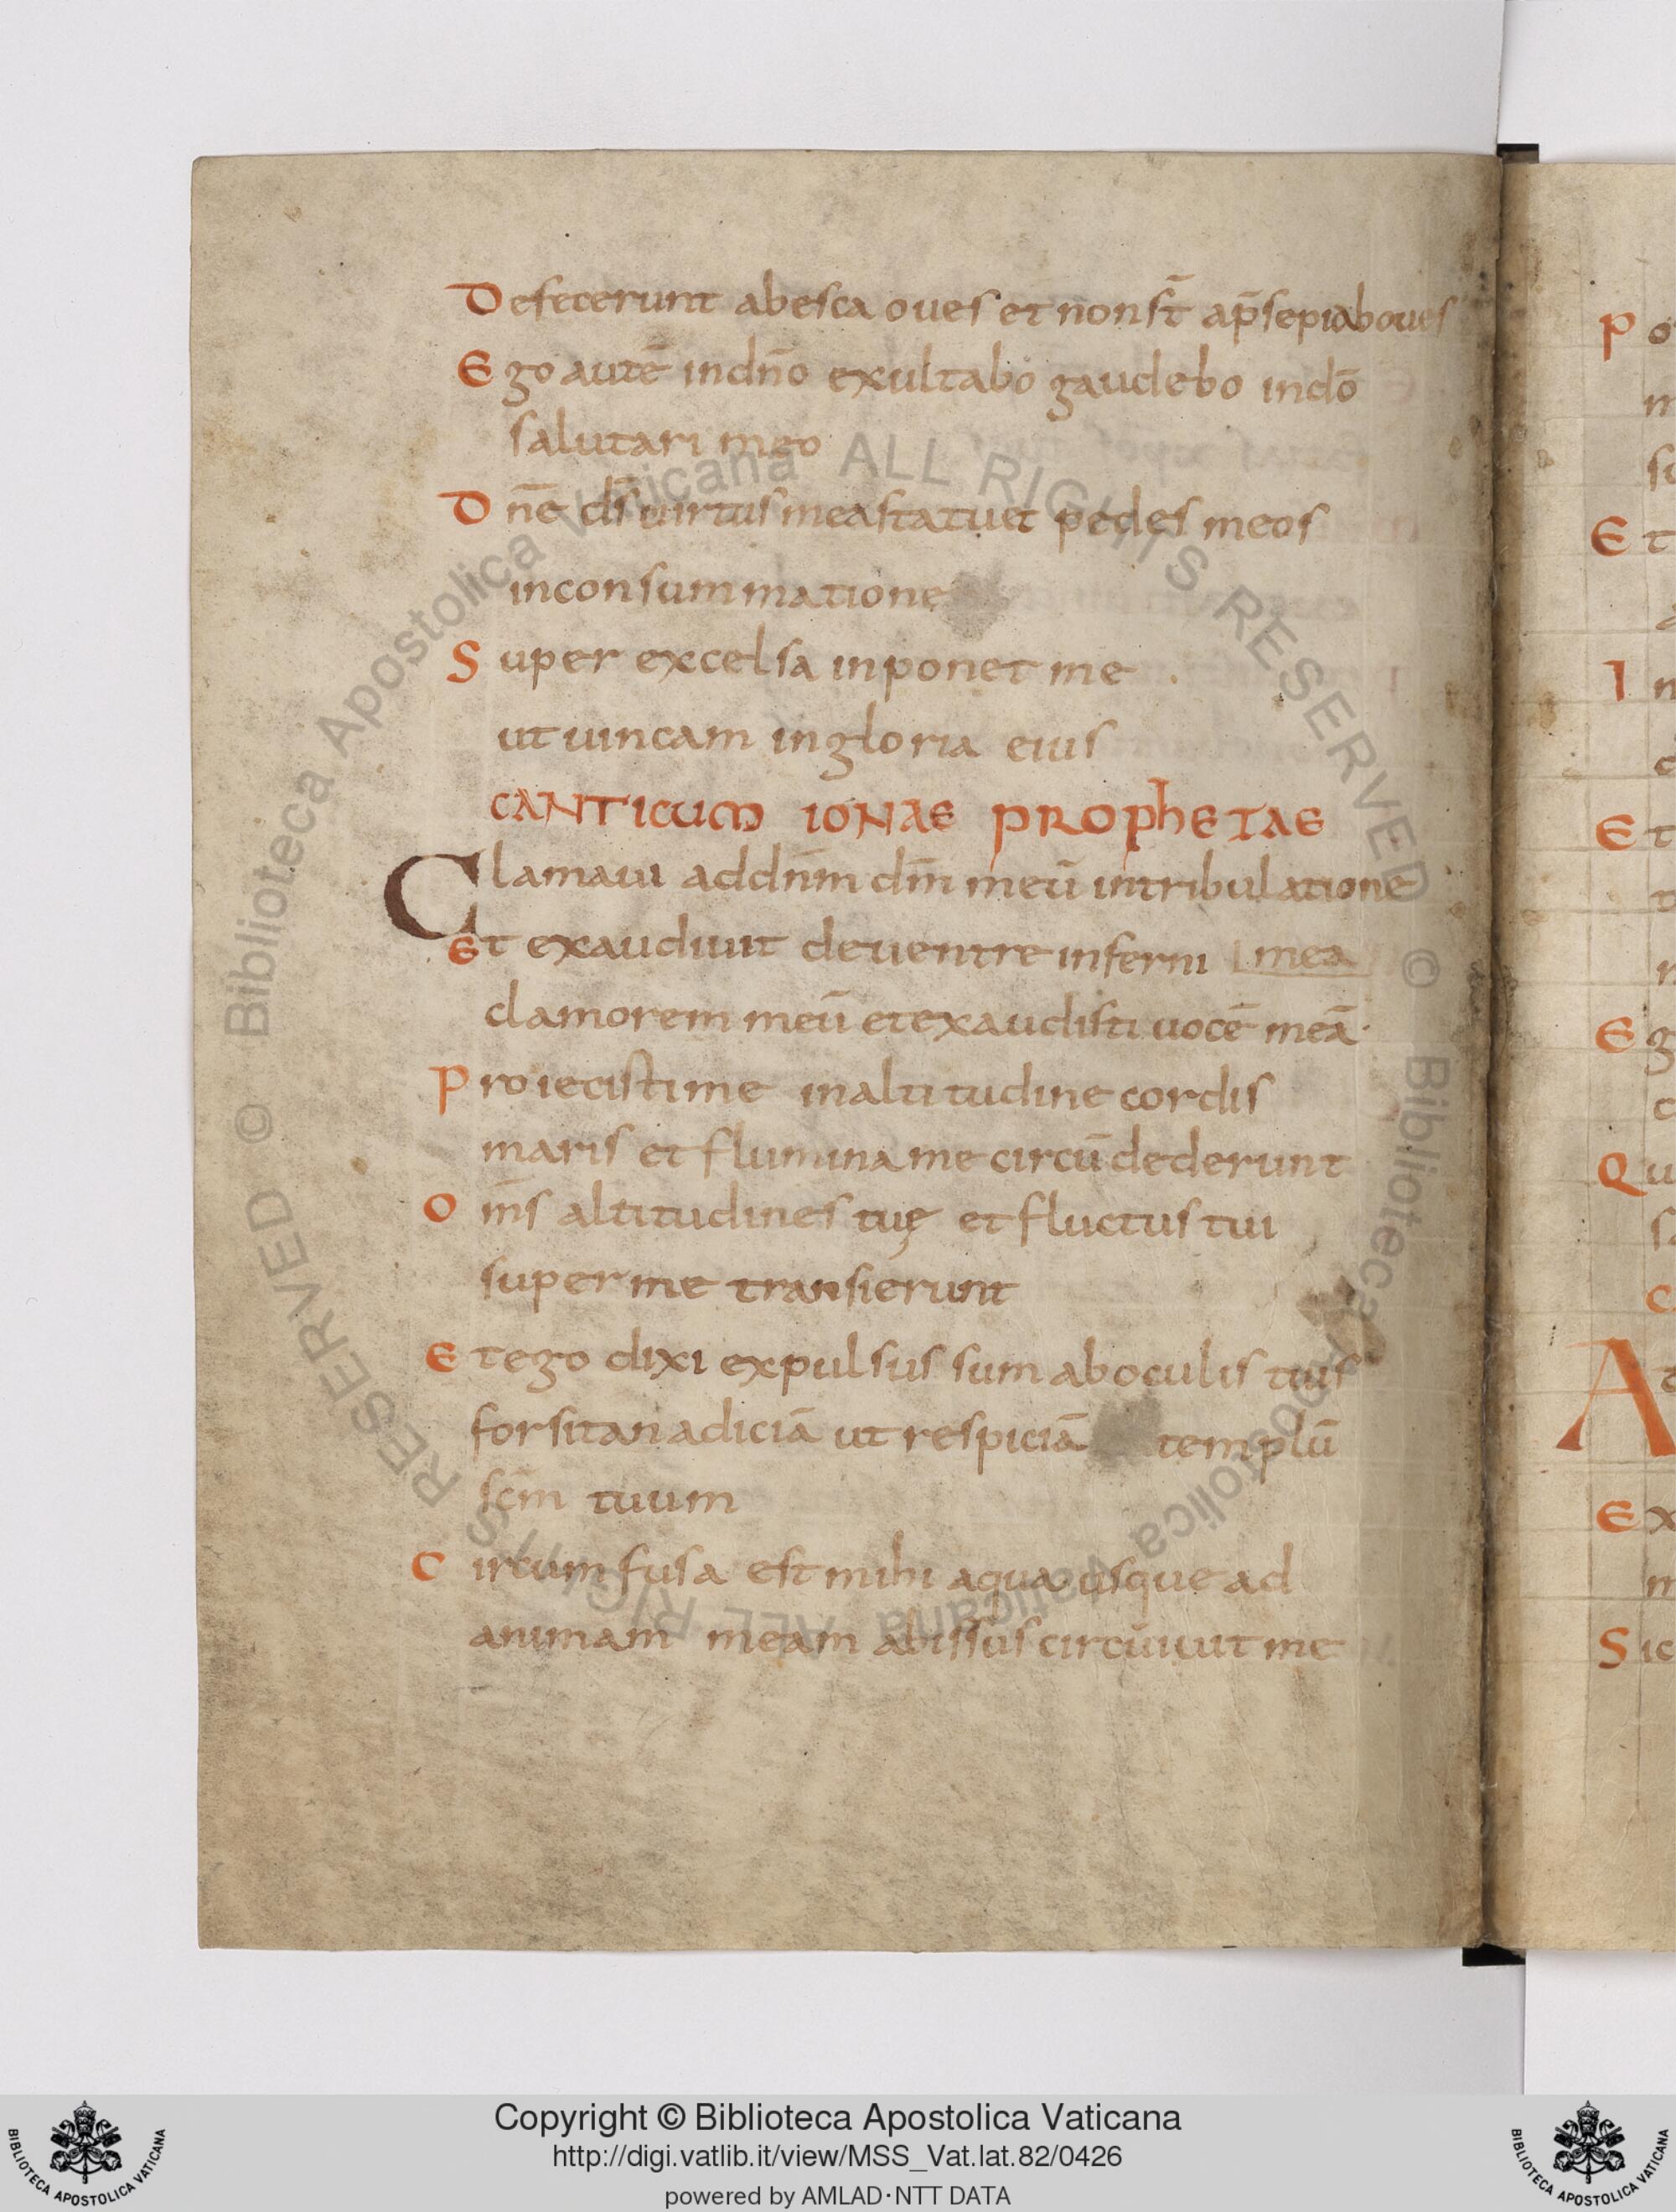 Defecerunt abesca oues et nonst̄ ap̄sepiaboues
Ego autē indn̄o exultabo gaudebo indō
salutari meo
Dn̄e ds̄ uirtus mea statuet pedes meos
inconsummatione
Super excelsa inponet me
ut uincam in gloria eius
CANTICUM IONAE PROPhETAE
Clamaui addn̄m dm̄ meū intribulatione
mea
Et exaudiuit deuentre inferni
clamorem meū etexaudisti uocē meā
Proiecisti me inaltitudine cordis
maris et flumina me circūdederunt
Omn̄s altitudines tuę et fluctus tui
super me transierunt
Et ego dixi expulsus sum aboculis tuis
forsitan adiciā ut respiciā templū
sc̄m tuum
Circumfusa est mihi aqua usque ad
animam meam abissus circūiuit me
P
E t
I n
E t
E g
Q u
A t
E x
S ic
© Biblioteca Apostolica Vaticana ALL RIGHTS RESERVED © Biblioteca Apostolica Vaticana ALL RIGHTS RESERVED
Copyright © Biblioteca Apostolica Vaticana
http://digi.vatlib.it/view/MSS_Vat.lat.82/0426
powered by AMLAD·NTT DATA
BIBLIOTECA APOSTOLICA VATICANA
BIBLIOTECA APOSTOLICA VATICANA